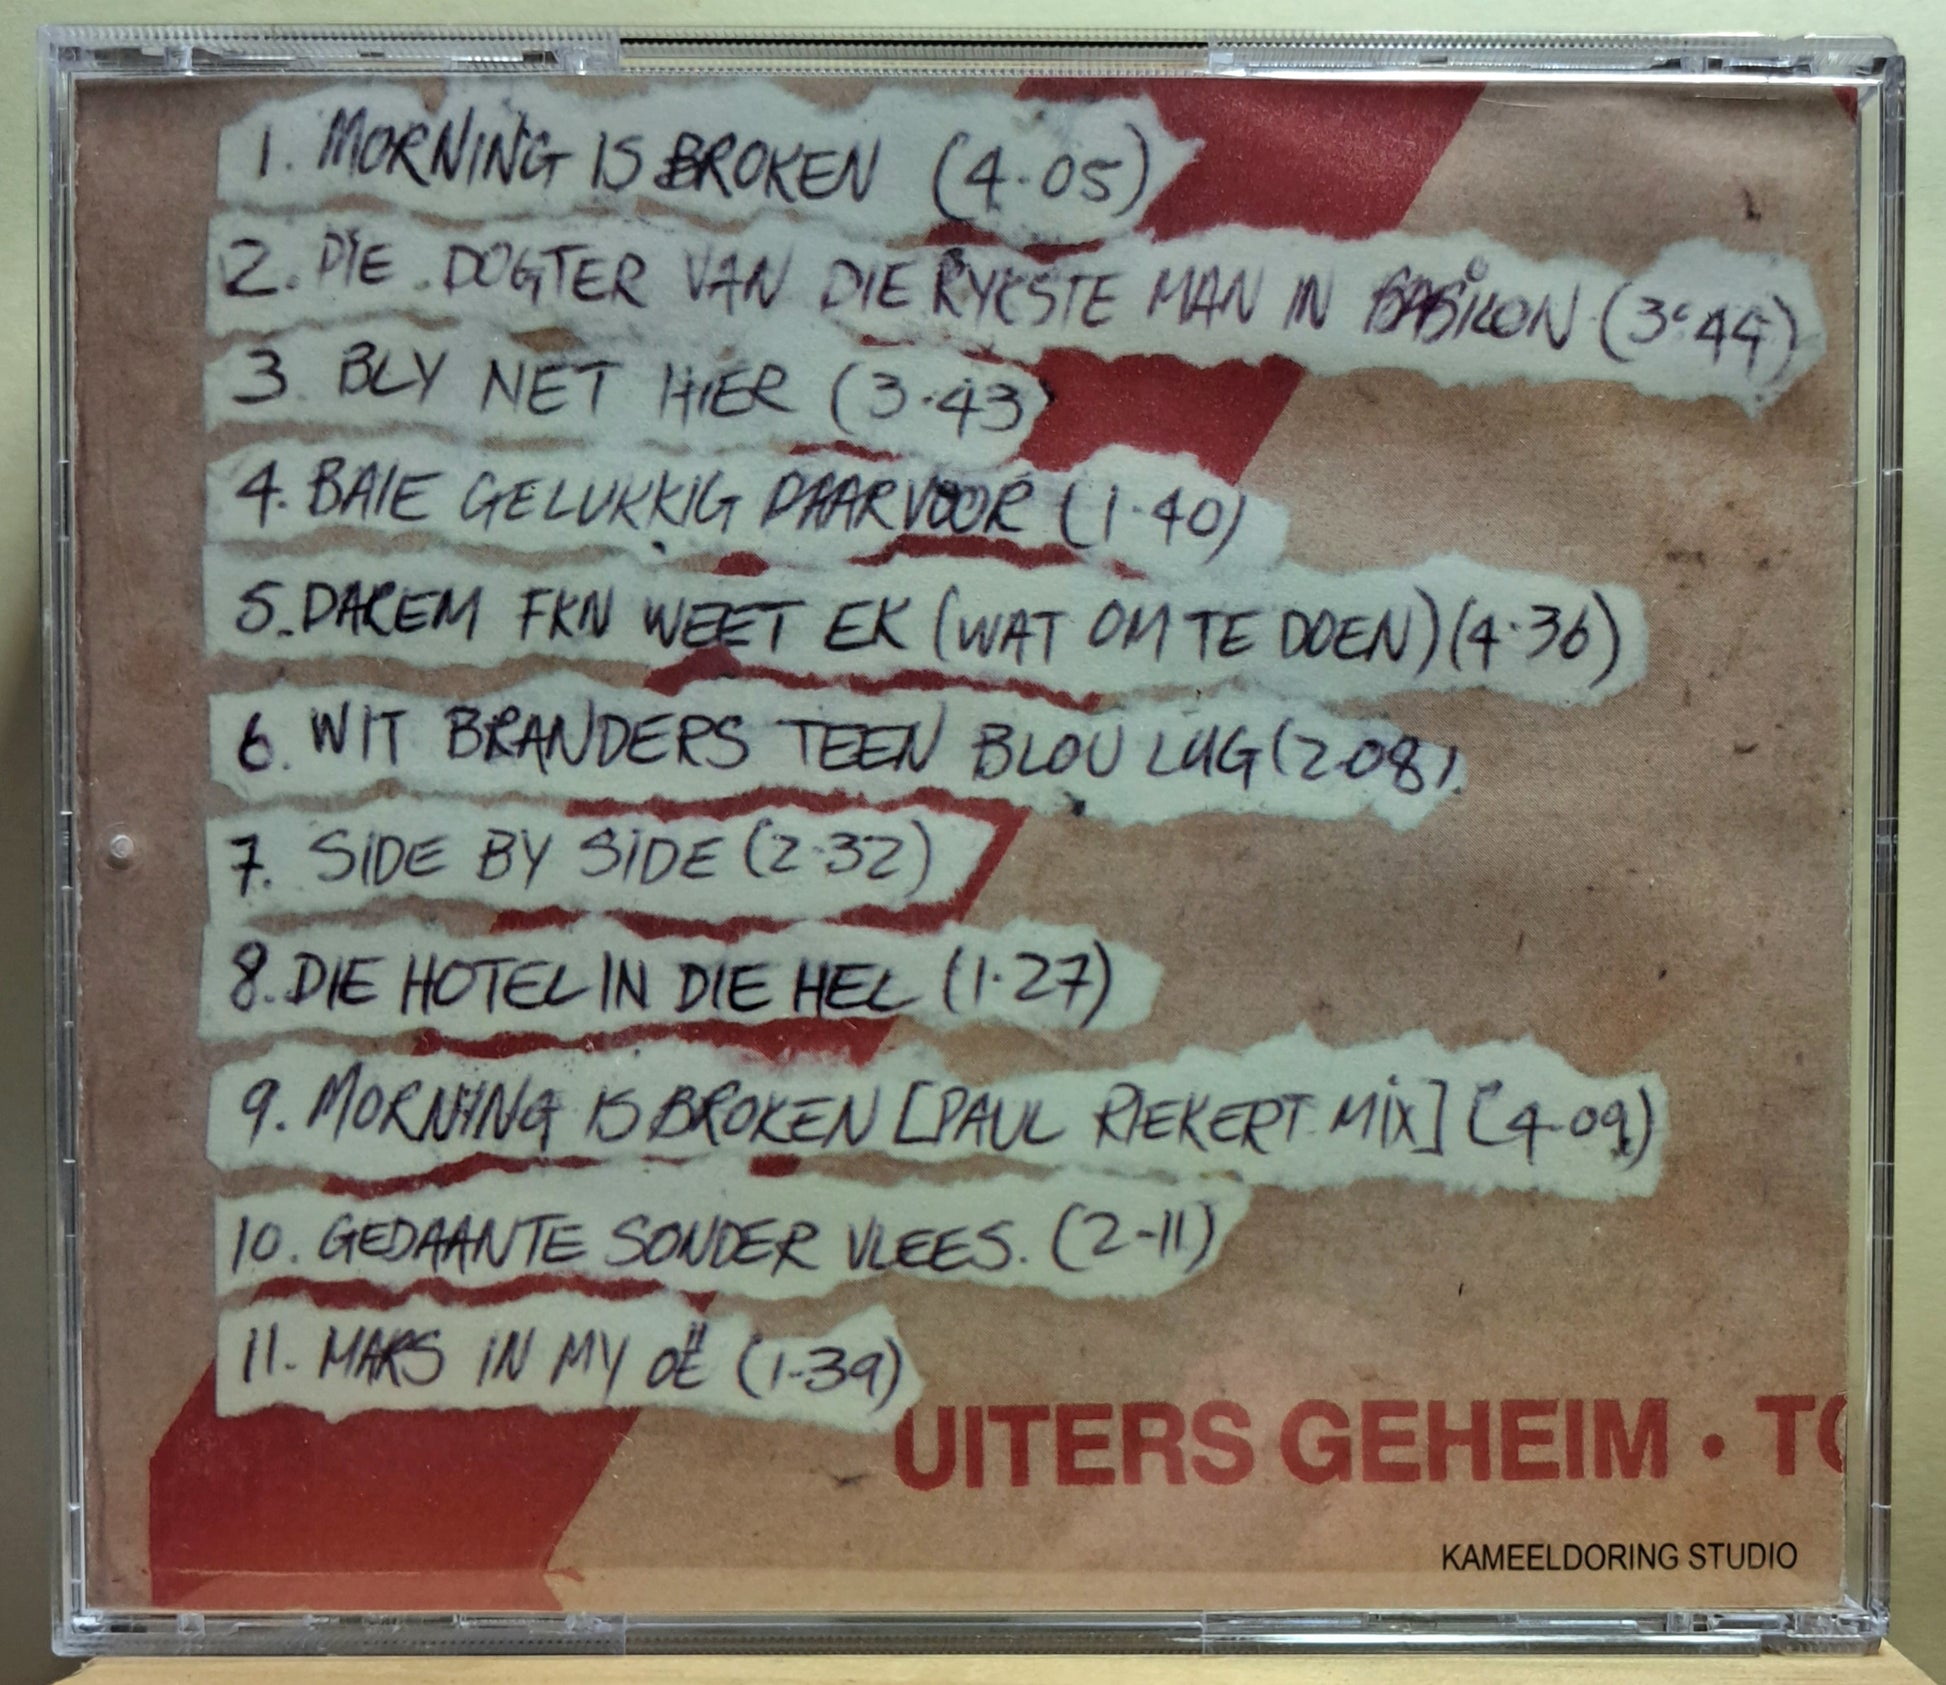 1. MORNING IS BROKEN (4.05)
2. DIE DOGTER VAN DIE RYKSTE MAN IN BABILON (3.44)
3. BLY NET HIER (3.43)
4. BAIE GELUKKIG DAARVOOR (1.40)
5. DAREM FKN WEET EK (WAT OM TE DOEN) (4.36)
6. WIT BRANDERS TEEN BLOU LUG (2.08)
7. SIDE BY SIDE (2.32)
8. DIE HOTEL IN DIE HEL (1.27)
9. MORNING IS BROKEN [PAUL RIEKERT MIX] (4.09)
10. GEDAANTE SONDER VLEES. (2-11)
11. MARS IN MY OË (1-39)
UITERS GEHEIM • TO
KAMEELDORING STUDIO